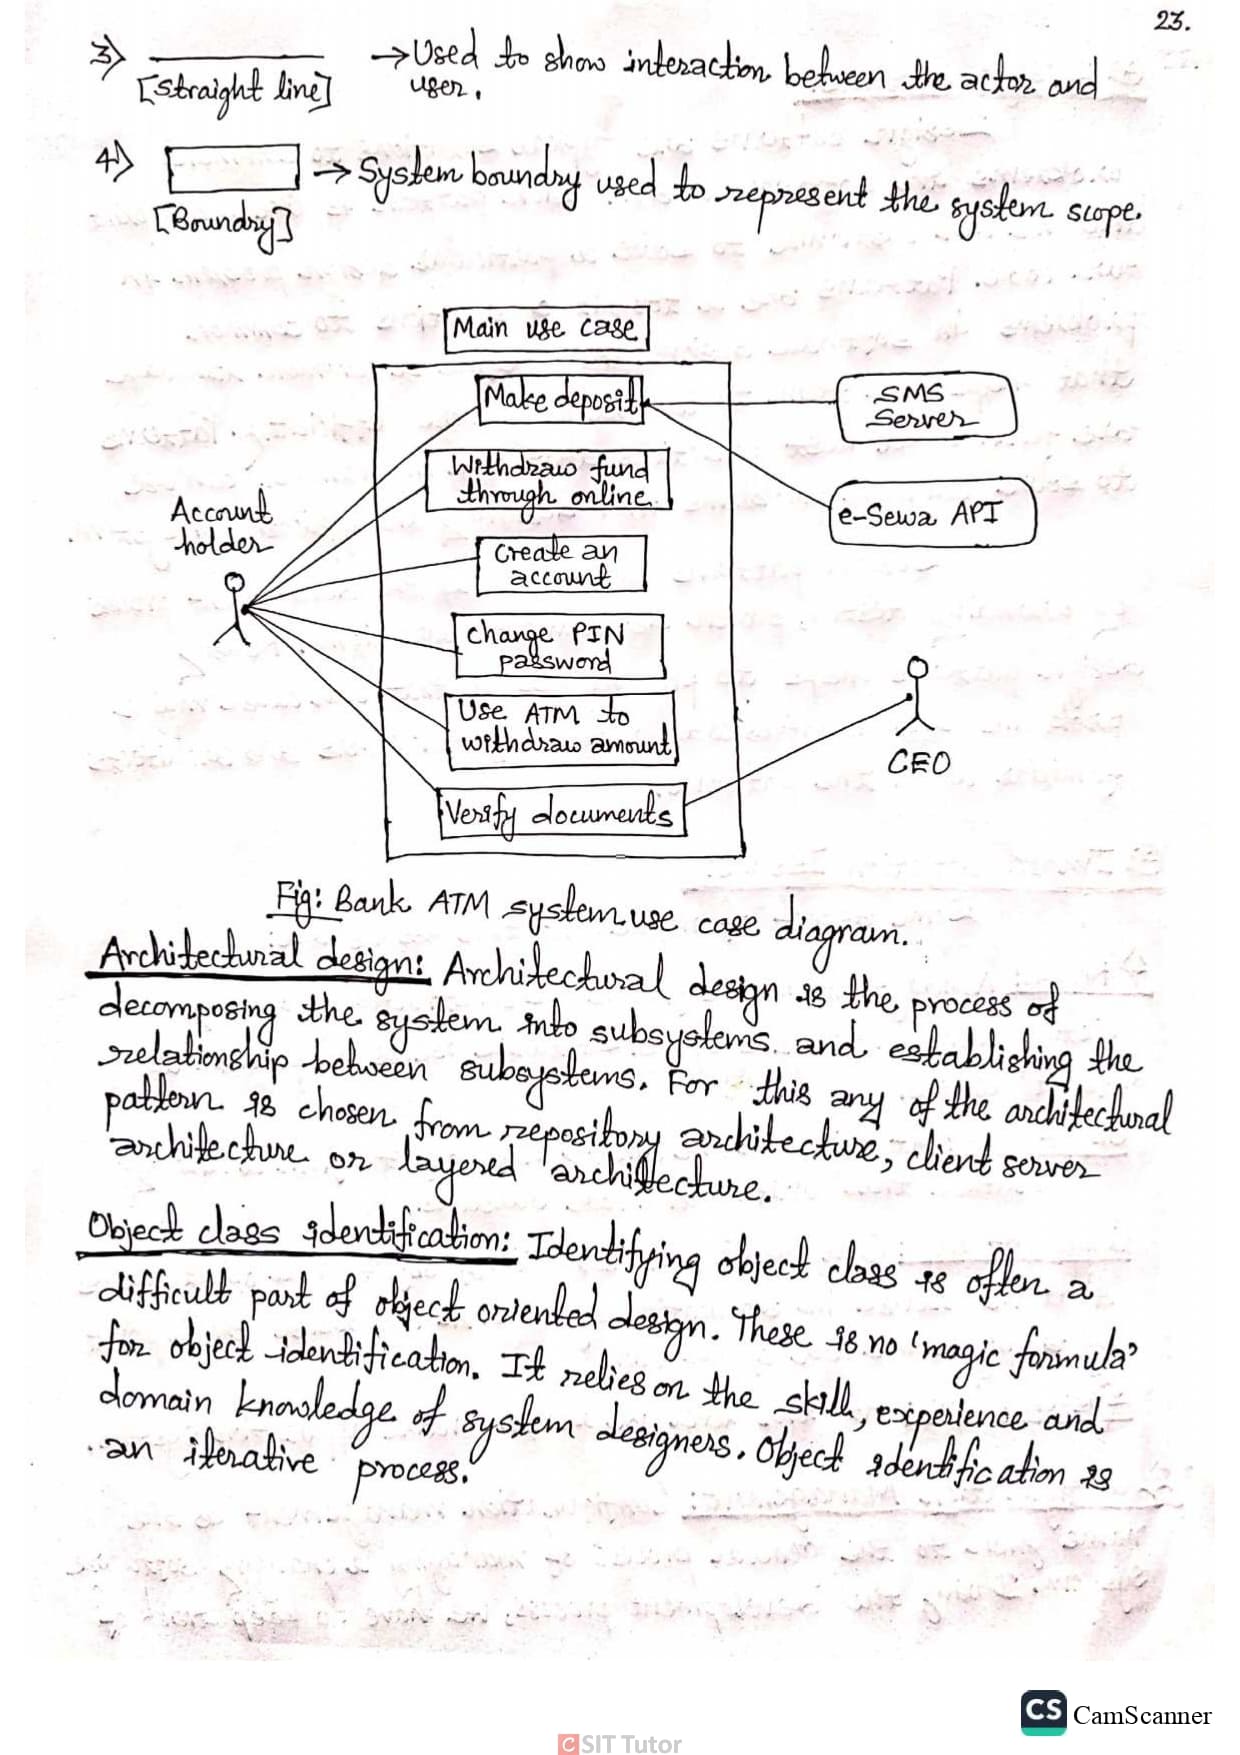 23.
3) → Used to show interaction between the actor and
[straight line] user.
4) → System boundry used to represent the system scope.
[Boundry]
Main use case
Make deposit
SMS
Server
Withdraw fund
through online
e-Sewa API
Account
holder
Create an
account
Change PIN
password
Use ATM to
withdraw amount
CEO
Verify documents
Fig: Bank ATM system use case diagram.
Architectural design: Architectural design is the process of
decomposing the system into subsystems and establishing the
relationship between subsystems. For this any of the architectural
pattern is chosen from repository architecture, client server
architecture or layered architecture.
Object class identification: Identifying object class is often a
difficult part of object oriented design. There is no 'magic formula'
for object identification. It relies on the skill, experience and
domain knowledge of system designers. Object identification is
an iterative process.
CS CamScanner
CSIT Tutor